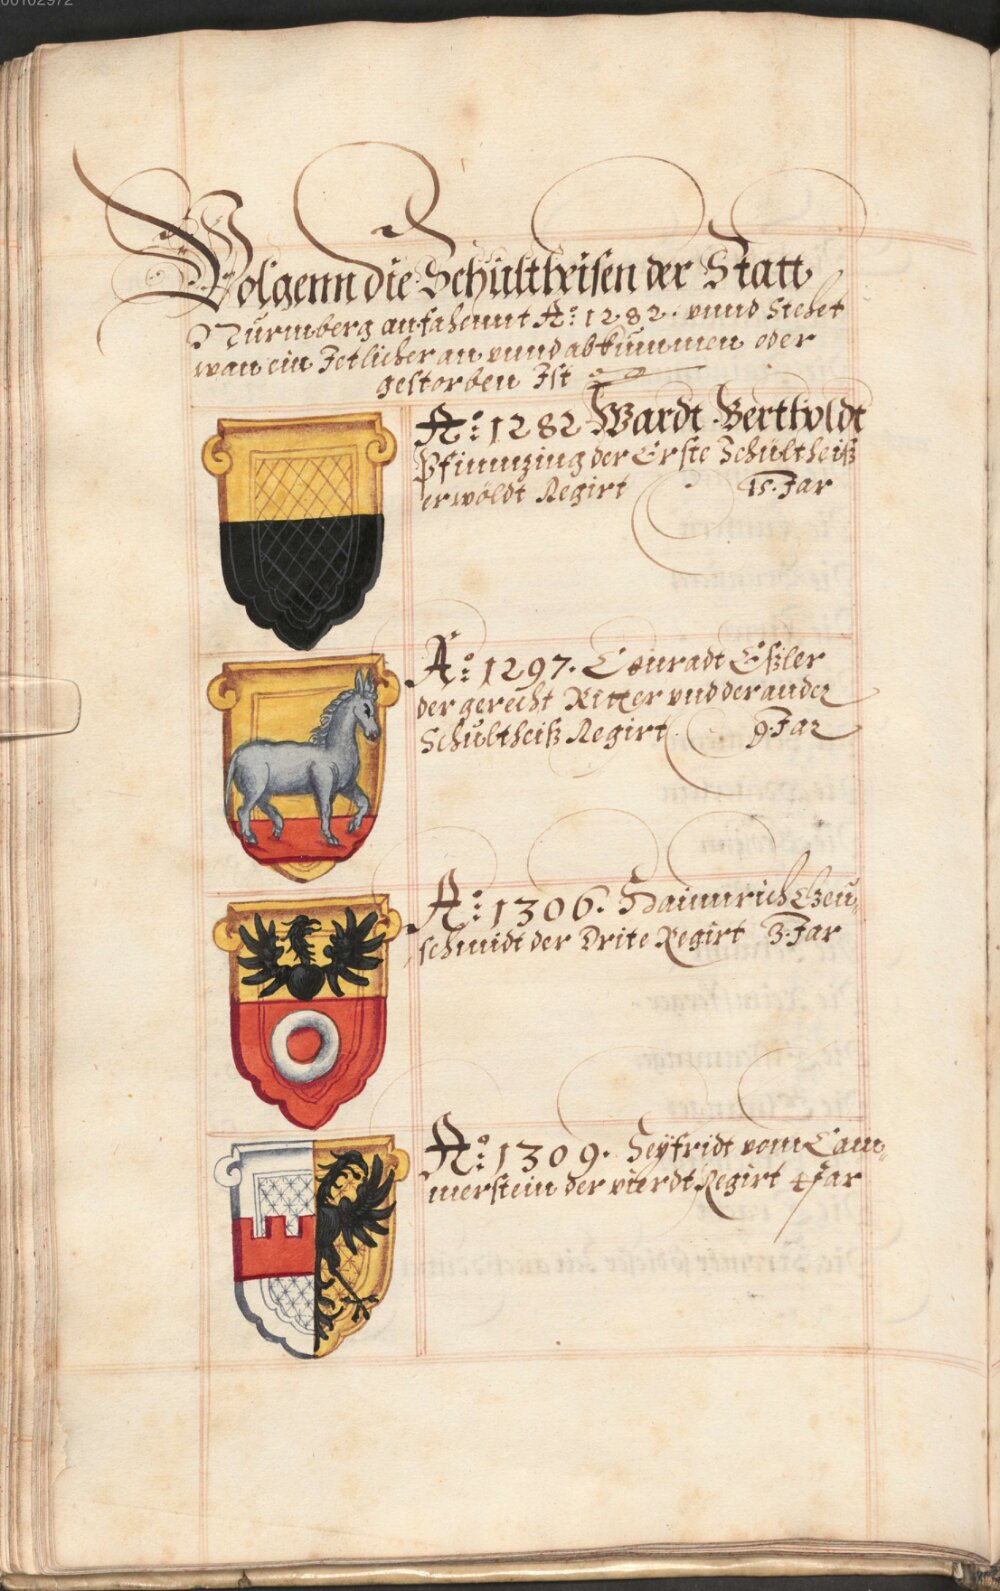 00102972
Volgenn die Schultheisen der Statt
Nürmberg anfahennt A:o 1282. vnnd Stehet
wan ein Jetlicher an vnnd abkummen oder
gestorben Ist
A:o 1282 Wardt Bertholdt
Pfinnzing der Erste Schultheiß
erwöldt Regirt 15. Jar
A:o 1297. Conradt Eßler
der gerecht Ritter vnd der ander
Schultheiß Regirt 9. Jar
A:o 1306. Hainnrich
schmidt der Drite Regirt 3. Jar
A:o 1309. Seyfridt vom Cam¬
merstein der vierdt Regirt 4 Jar